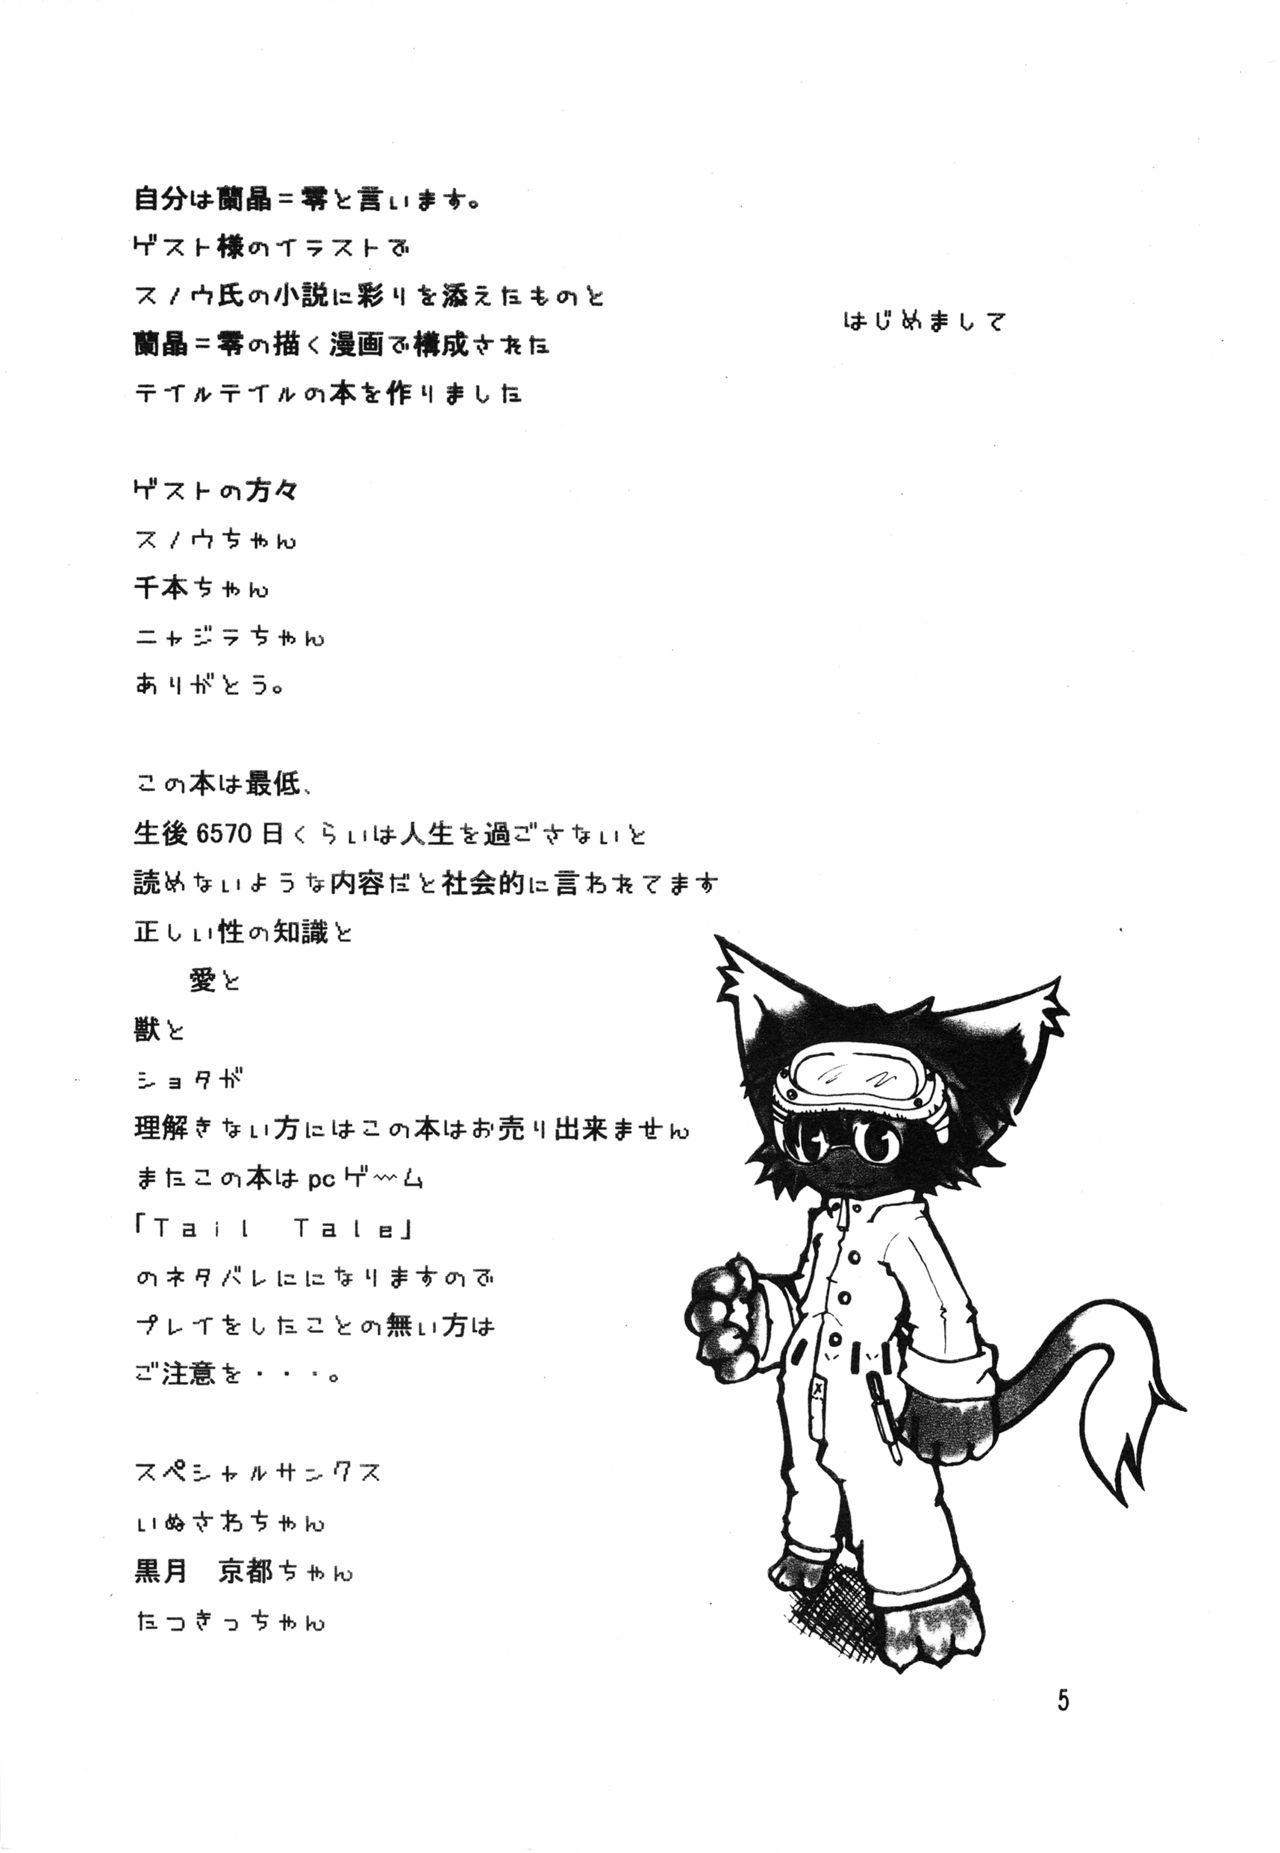 はじめまして
自分は蘭晶＝零と言います。
ゲスト様のイラストで
スノウ氏の小説に彩りを添えたものと
蘭晶＝零の描く漫画で構成された
テイルテイルの本を作りました
ゲストの方々
スノウちゃん
千本ちゃん
ニャジラちゃん
ありがとう。
この本は最低、
生後6570日くらいは人生を過ごさないと
読めないような内容だと社会的に言われてます
正しい性の知識と
愛と
獣と
ショタが
理解きない方にはこの本はお売り出来ません
またこの本はpcゲ〜ム
「Tail Tale」
のネタバレにになりますので
プレイをしたことの無い方は
ご注意を・・・。
スペシャルサンクス
いぬさわちゃん
黒月 京都ちゃん
たつきっちゃん
5